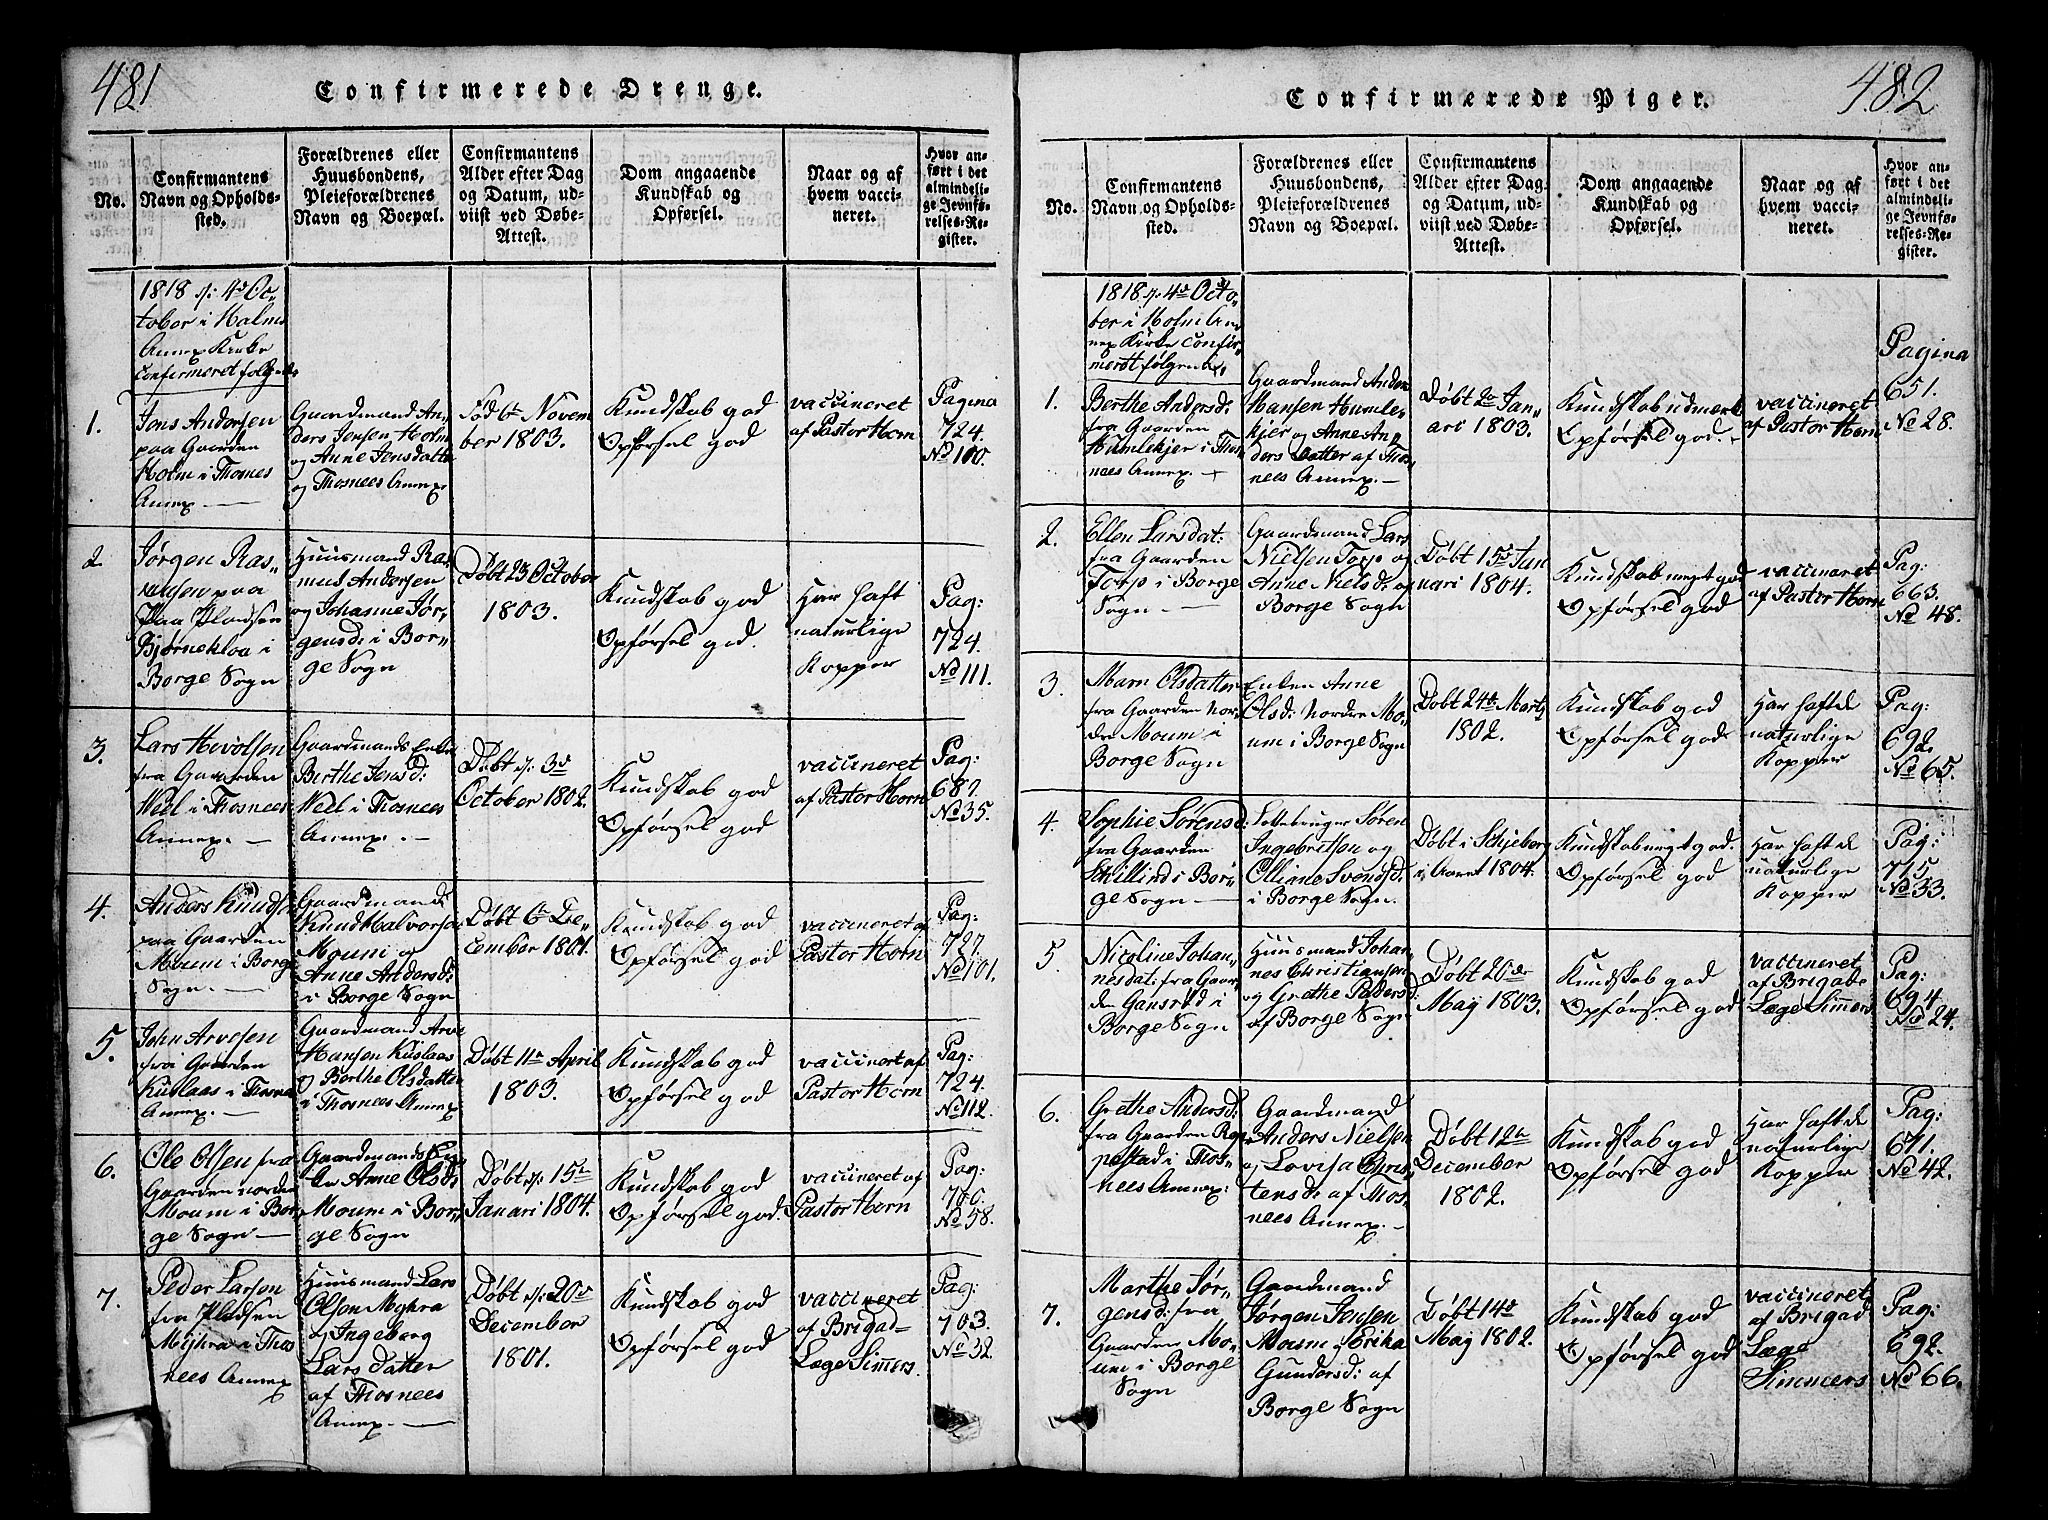 481
Confirmerede Drenge.
No.
Confirmantens
Navn og Opholds-
sted.
Forældrenes eller
Huusbondens,
Pleieforældrenes
Navn og Boepæl.
Confirmantens
Alder efter Dag
og Datum, ud-
viist ved Døbe-
Attest.
Dom angaaende
Kundskab og
Opførsel.
Naar og af
hvem vacci-
neret.
Hvor an-
ført i det
almindeli-
ge Jevnfø-
relses-Re-
gister.
1818 d: 4d Oc-
tober i Holms
Annex Kirke
Confirmeret følgende
1.
Jens Andersen
paa Gaarden
Holm i Thosnes
Annex. —
Gaardmand An-
ders Jensen Holm
og Anne Jensdatter
og Thosnees Annex.
Fød 6te Novem
ber 1803.
Kundskab god
Opførsel god
vaccineret
af Pastor Horn
Pagina
724.
No 100.
2
Jørgen Ras-
musen paa
Plaa Pladsen
Bjørnekloa i
Borge Sogn
Huusmand Ra-
smus Andersen
og Johanne Jør-
gensd: i Bor-
ge Sogn
Døbt 23 October
1803.
Kundskab god
Opførsel god.
Har haft
naturlige
Kopper
Pag:
724.
No 111.
3.
Lars Hevolsen
fra Gaarden
Weel i Thosnees
Annex. —
Gaardmands Enke
Berthe Jensd:
Weel i Thosnees
Annex. —
Døbt d: 3d
October 1802.
Kundskab god
Opførsel god
vaccineret
af Pastor Horn
Pag:
687.
No 35.
4.
Anders Knudsen
paa Gaarden
Moum i Borge
Sogn. —
Gaardmand
Knud Halvorsen
Moum og
Anne Andersd:
i Borge Sogn
Døbt 6te De-
cember 1801.
Kundskab god
Opførsel god
vaccineret af
Pastor Horn
Pag:
727.
No 101.
5.
John Arvesen
fra Gaarden
Kuslaas i Thosnes
Annex. —
Gaardmand Arve
Hansen Kuslaas
og Berthe Olsdatter
i Thosnees Annex
Døbt 11te April
1803.
Kundskab god
Opførsel god
vaccinert af
Pastor Horn
Pag:
724.
No 112.
6.
Ole Olsen fra
Gaarden norden
Moum i Bor-
ge Sogn —
Gaardmands En-
ke Anne Olsd:
Moum i Bor-
ge Sogn
Døbt d: 15de
Januari 1804.
Kundskab god
Opførsel god.
vaccineret af
Pastor Horn
Pag:
706.
No 58.
7.
Peder Larsen
fra Pladsen
Myhra i Thos
nees Annex
Huusmand Lars
Olsen Myhra
og Ingeborg
Lars datter
af Thosnees
Annex. —
Døbt d: 20de
December
1801.
Kundskab god
Opførsel god
vaccineret
af Brigad-
Læge Simers.
Pag:
703.
No 32.
482
Confirmerede Piger.
No.
Confirmantens
Navn og Opholds-
sted.
Forældrenes eller
Huusbondens,
Pleieforældrenes
Navn og Boepæl.
Confirmantens
Alder efter Dag
og Datum, ud-
viist ved Døbe-
Attest.
Dom angaaende
Kundskab og
Opførsel.
Naar og af
hvem vacci-
neret.
Hvor an-
ført i det
almindeli-
ge Jevnfø-
relses-Re-
gister.
1818 d: 4de Octo-
ber i Holm An
nex Kirke confir-
meret følgende
1.
Berthe Andersd:
fra Gaarden
Humlekjer i Thos
nees Annex. —
Gaardmand Anders
Hansen Humle-
kjer og Anne An-
ders datter af Thos-
nees Annex. —
Døbt 2de Jan-
ari 1803.
Kundskab udmerk
Opførsel god. —
vaccineret
af Pastor Horn
Pagina
651.
No 28.
2.
Ellen Larsdat:
fra Gaarden
Torp i Borge
Sogn. —
Gaardmand Lars
Nielsen Torp og
Anne Nielsd: af
Borge Sogn
Døbt 15de Jan
nari 1804.
Kundskab megt god
Opførsel god
vaccineret
af Pastor Horn
Pag:
663.
No 48.
3.
Marn Olsdatter
fra Gaarden Nor-
der Moum i
Borge Sogn
Enken Anne
Olsd: Nordre Mo-
um i Borge Sogn
Døbt 24de Marty
1802.
Kundskab god
Opførsel god
Har hafte
naturlige
Kopper
Pag:
692.
No 65.
4.
Sophie Sørensd:
fra Gaarden
Skillind i Bor-
ge Sogn —
Søren
Ingebritsen og
Olliane Svendsd:
i Borge Sogn.
Døbt i Schjeberg
i Aaret 1804.
Kundskab megt god.
Opførsel god
Har hafte
naturlige
Kopper
Pag:
715
No 33.
5.
Nicoline Johan-
nesdat: fra Gaar-
den Gansrød i
Borge Sogn
Huusmand Johan-
nes Christiansen
og Grethe Pedersd:
af Borge Sogn
Døbt 20de
May 1803.
Kundskab god
Opførsel god
vaccineret
af Brigade
Læge Simers
Pag:
694
No 24.
6.
Grethe Andersd:
fra Gaarden Rap-
pestad i Thos-
nees Annex:
Gaardmand
Anders Nielsen
og Lovisa Chris-
tensd: af Thos-
nees Annex. —
Døbt 12te
December
1802.
Kundskab god
Opførsel god
Har hafte
naturlige
Kopper
Pag:
671.
No 42.
7.
Marthe Jør-
gensd: fra
Gaarden Mo-
um i Borge
Sogn
Gaardmand
Jørgen Jensen
Moum og Erika
Gundersd: af
Borge Sogn
Døbt 14de
May 1802.
Kundskab god
Opførsel god
vaccineret
af Brigad
Læge
Simmers
Pag:
692.
No 66.